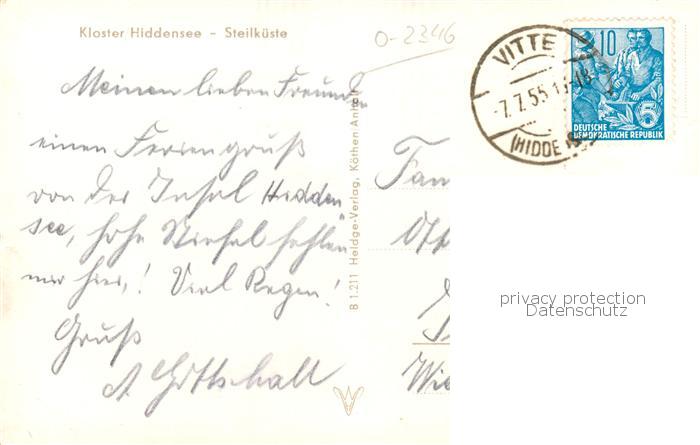 Kloster Hiddensee – Steilküste
0-2346
Meinen lieben Freunden
einen Feriengruß
von der Insel Hidden
see, hohe Stiefel fehlen
mir hier,! Viel Regen!
Gruß
A. Gottschall
B 1.211 Heldge-Verlag, Köthen Anhalt
VITTE
-7.7.55.
(HIDDENSEE)
10
5
DEUTSCHE
DEMOKRATISCHE REPUBLIK
Fam
Wie
privacy protection
Datenschutz